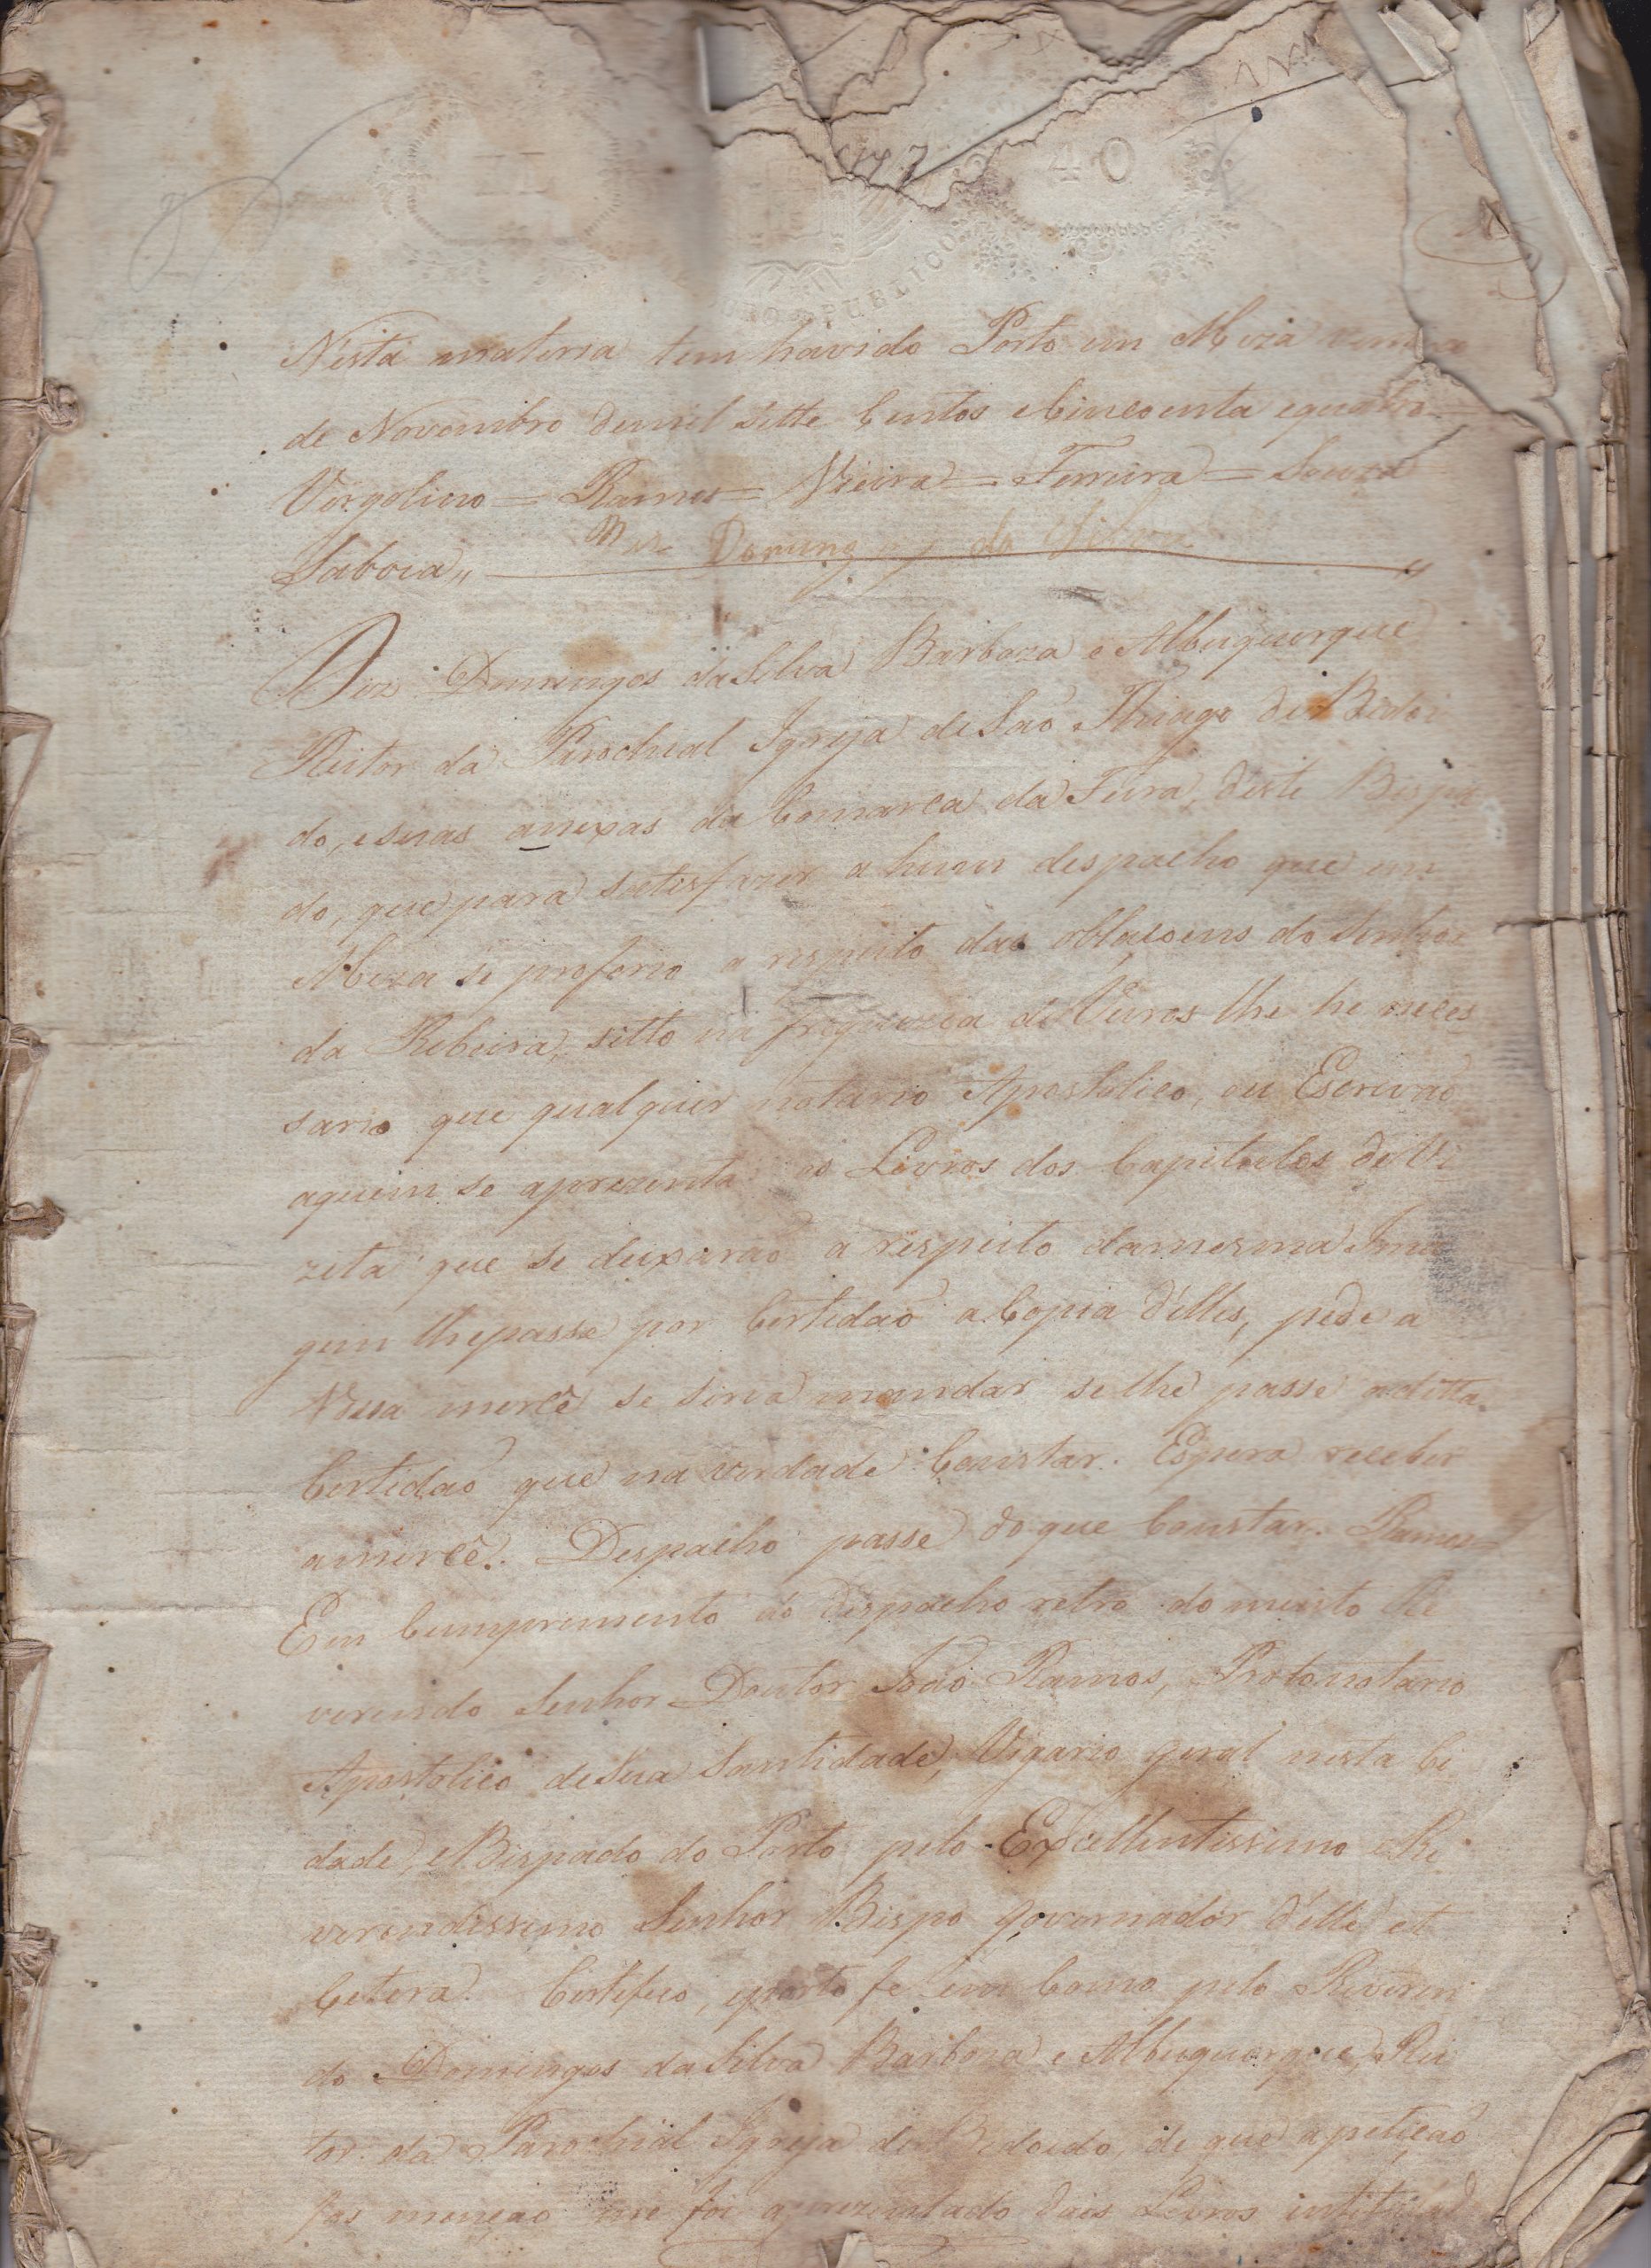 40
PUBLICO
Nesta materia tem havido Porto em Meza
de Novembro demil sette Centos eCincoenta equatro =
Vergolino = Ramos = Vieira = Ferreira = Souza
Saboia,,
Domingos da Silva
Diz Domingos daSilva Barboza e Albuquerque
Reitor da Parochial Igreja de Saõ Thiago de Bedoi
do, esuas anexas da Comarca da Feira, deste Bispa
do, que para satisfazer a hum despacho que em
Meza se proferio a respeito das oblasoens do Senhor
da Rebeira, sitto na freguezia de Veiros lhe he neces
sario que qualquer notario Apostolico, ou Escrivaõ
aquem se aprezenta os Livros dos Capitolos deVi
zita que se deixaraõ a respeito damesma Ima
gem lhepasse por Certidaõ a Copia d'elles, pede a
Vossa mercê se sirva mandar selhe passe aditta
Certidaõ que na verdade Constar. Espera receber
amercê. Despacho passe do que Constar. Ramos =
Em Cumprimento do despacho retro do muito Re
verendo Senhor Doutor Joaõ Ramos, Protonotario
Apostolico deSua Santidade, Vigario geral nesta Ci
dade, eBispado do Porto pelo Excellentissimo Re
verendissimo Senhor Bispo governador d'elle et
Cetera. Certefico, eporto fe em Como pelo Reveren
do Domingos daSilva Barboza e Albuquerque, Rei
tor da Parochial Igreja de Bedoido, de que apetiçaõ
fas mençaõ me foi aprezentado dois Livros